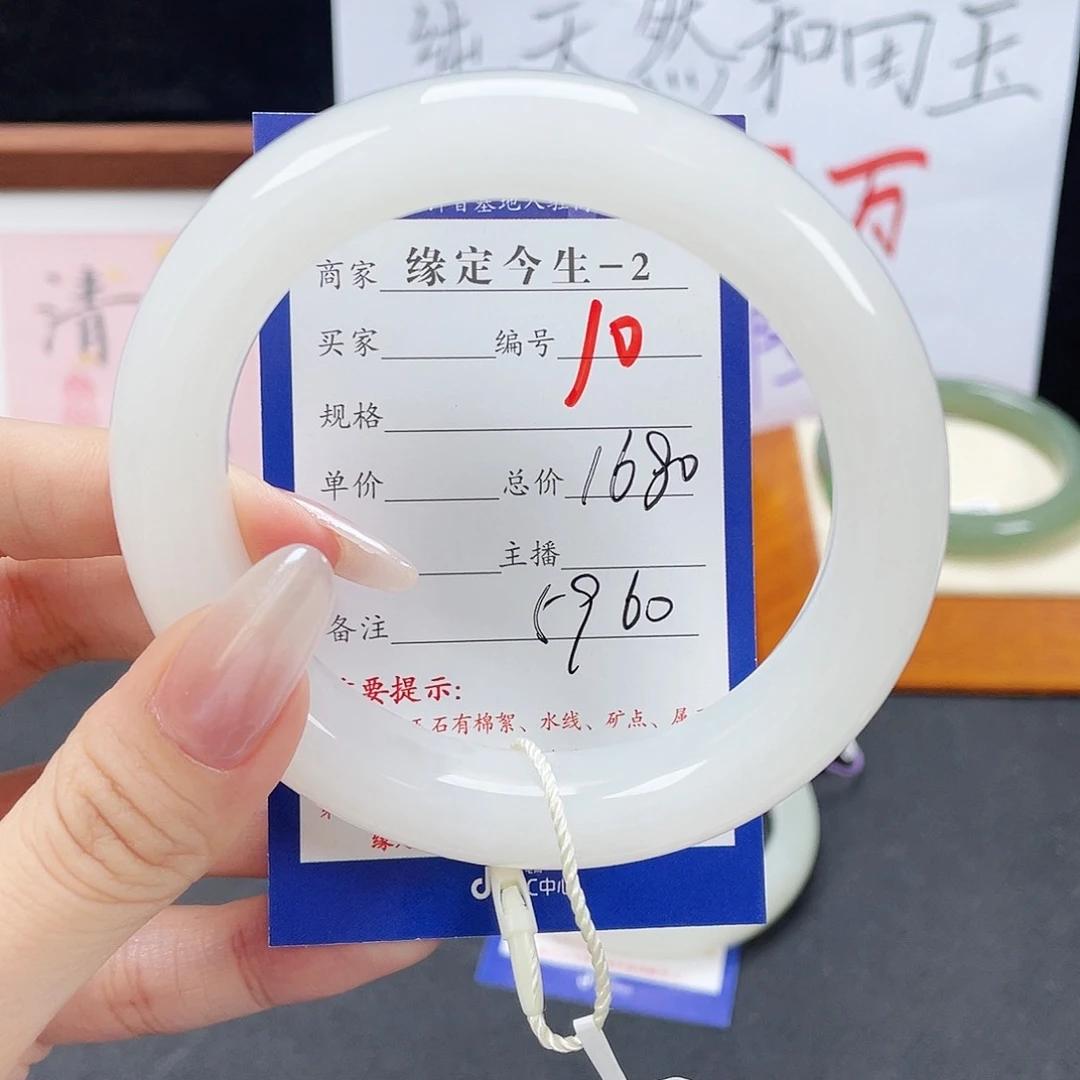 纯天然和田玉
万
清
商家 缘定今生-2
买家 编号 10
规格
单价 总价 1680
主播
备注 1960
要提示:
石有棉絮、水线、矿点、属
缘
C中心